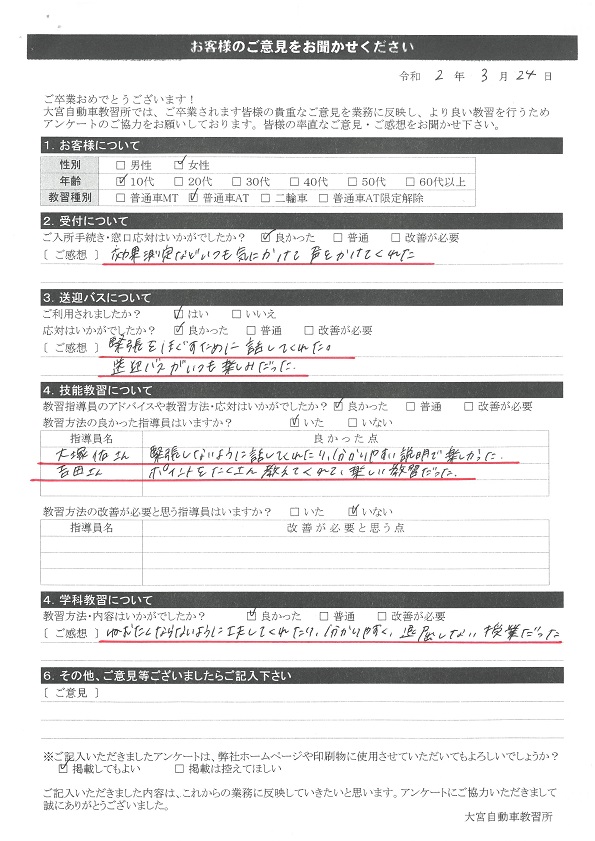 お客様のご意見をお聞かせください
令和 2 年 3 月 24 日
ご卒業おめでとうございます！
大宮自動車教習所では、ご卒業されます皆様の貴重なご意見を業務に反映し、より良い教習を行うため
アンケートのご協力をお願いしております。皆様の率直なご意見・ご感想をお聞かせ下さい。
1. お客様について
性別 □ 男性 ☑ 女性
年齢 ☑ 10代 □ 20代 □ 30代 □ 40代 □ 50代 □ 60代以上
教習種別 □ 普通車MT ☑ 普通車AT □ 二輪車 □ 普通車AT限定解除
2. 受付について
ご入所手続き・窓口応対はいかがでしたか？ ☑ 良かった □ 普通 □ 改善が必要
[ ご感想 ] 効果測定などいつも気にかけて声をかけてくれた
3. 送迎バスについて
ご利用されましたか？ ☑ はい □ いいえ
応対はいかがでしたか？ ☑ 良かった □ 普通 □ 改善が必要
[ ご感想 ] 緊張をほぐすために話してくれた。
送迎バスがいつも楽しみだった。
4. 技能教習について
教習指導員のアドバイスや教習方法・応対はいかがでしたか？ ☑ 良かった □ 普通 □ 改善が必要
教習方法の良かった指導員はいますか？ ☑ いた □ いない
指導員名 良かった点
大塚佑さん 緊張しないように話してくれたり、分かりやすい説明で楽しかった.
吉田さん ポイントをたくさん教えてくれて、楽しい教習だった.
教習方法の改善が必要と思う指導員はいますか？ □ いた ☑ いない
指導員名 改善が必要と思う点
4. 学科教習について
教習方法・内容はいかがでしたか？ ☑ 良かった □ 普通 □ 改善が必要
[ ご感想 ] ねむたくならないように工夫してくれたり、分かりやすく、退屈しない授業だった
6. その他、ご意見等ございましたらご記入下さい
[ ご意見 ]
※ご記入いただきましたアンケートは、弊社ホームページや印刷物に使用させていただいてもよろしいでしょうか？
☑ 掲載してもよい □ 掲載は控えてほしい
ご記入いただきました内容は、これからの業務に反映していきたいと思います。アンケートにご協力いただきまして
誠にありがとうございました。
大宮自動車教習所